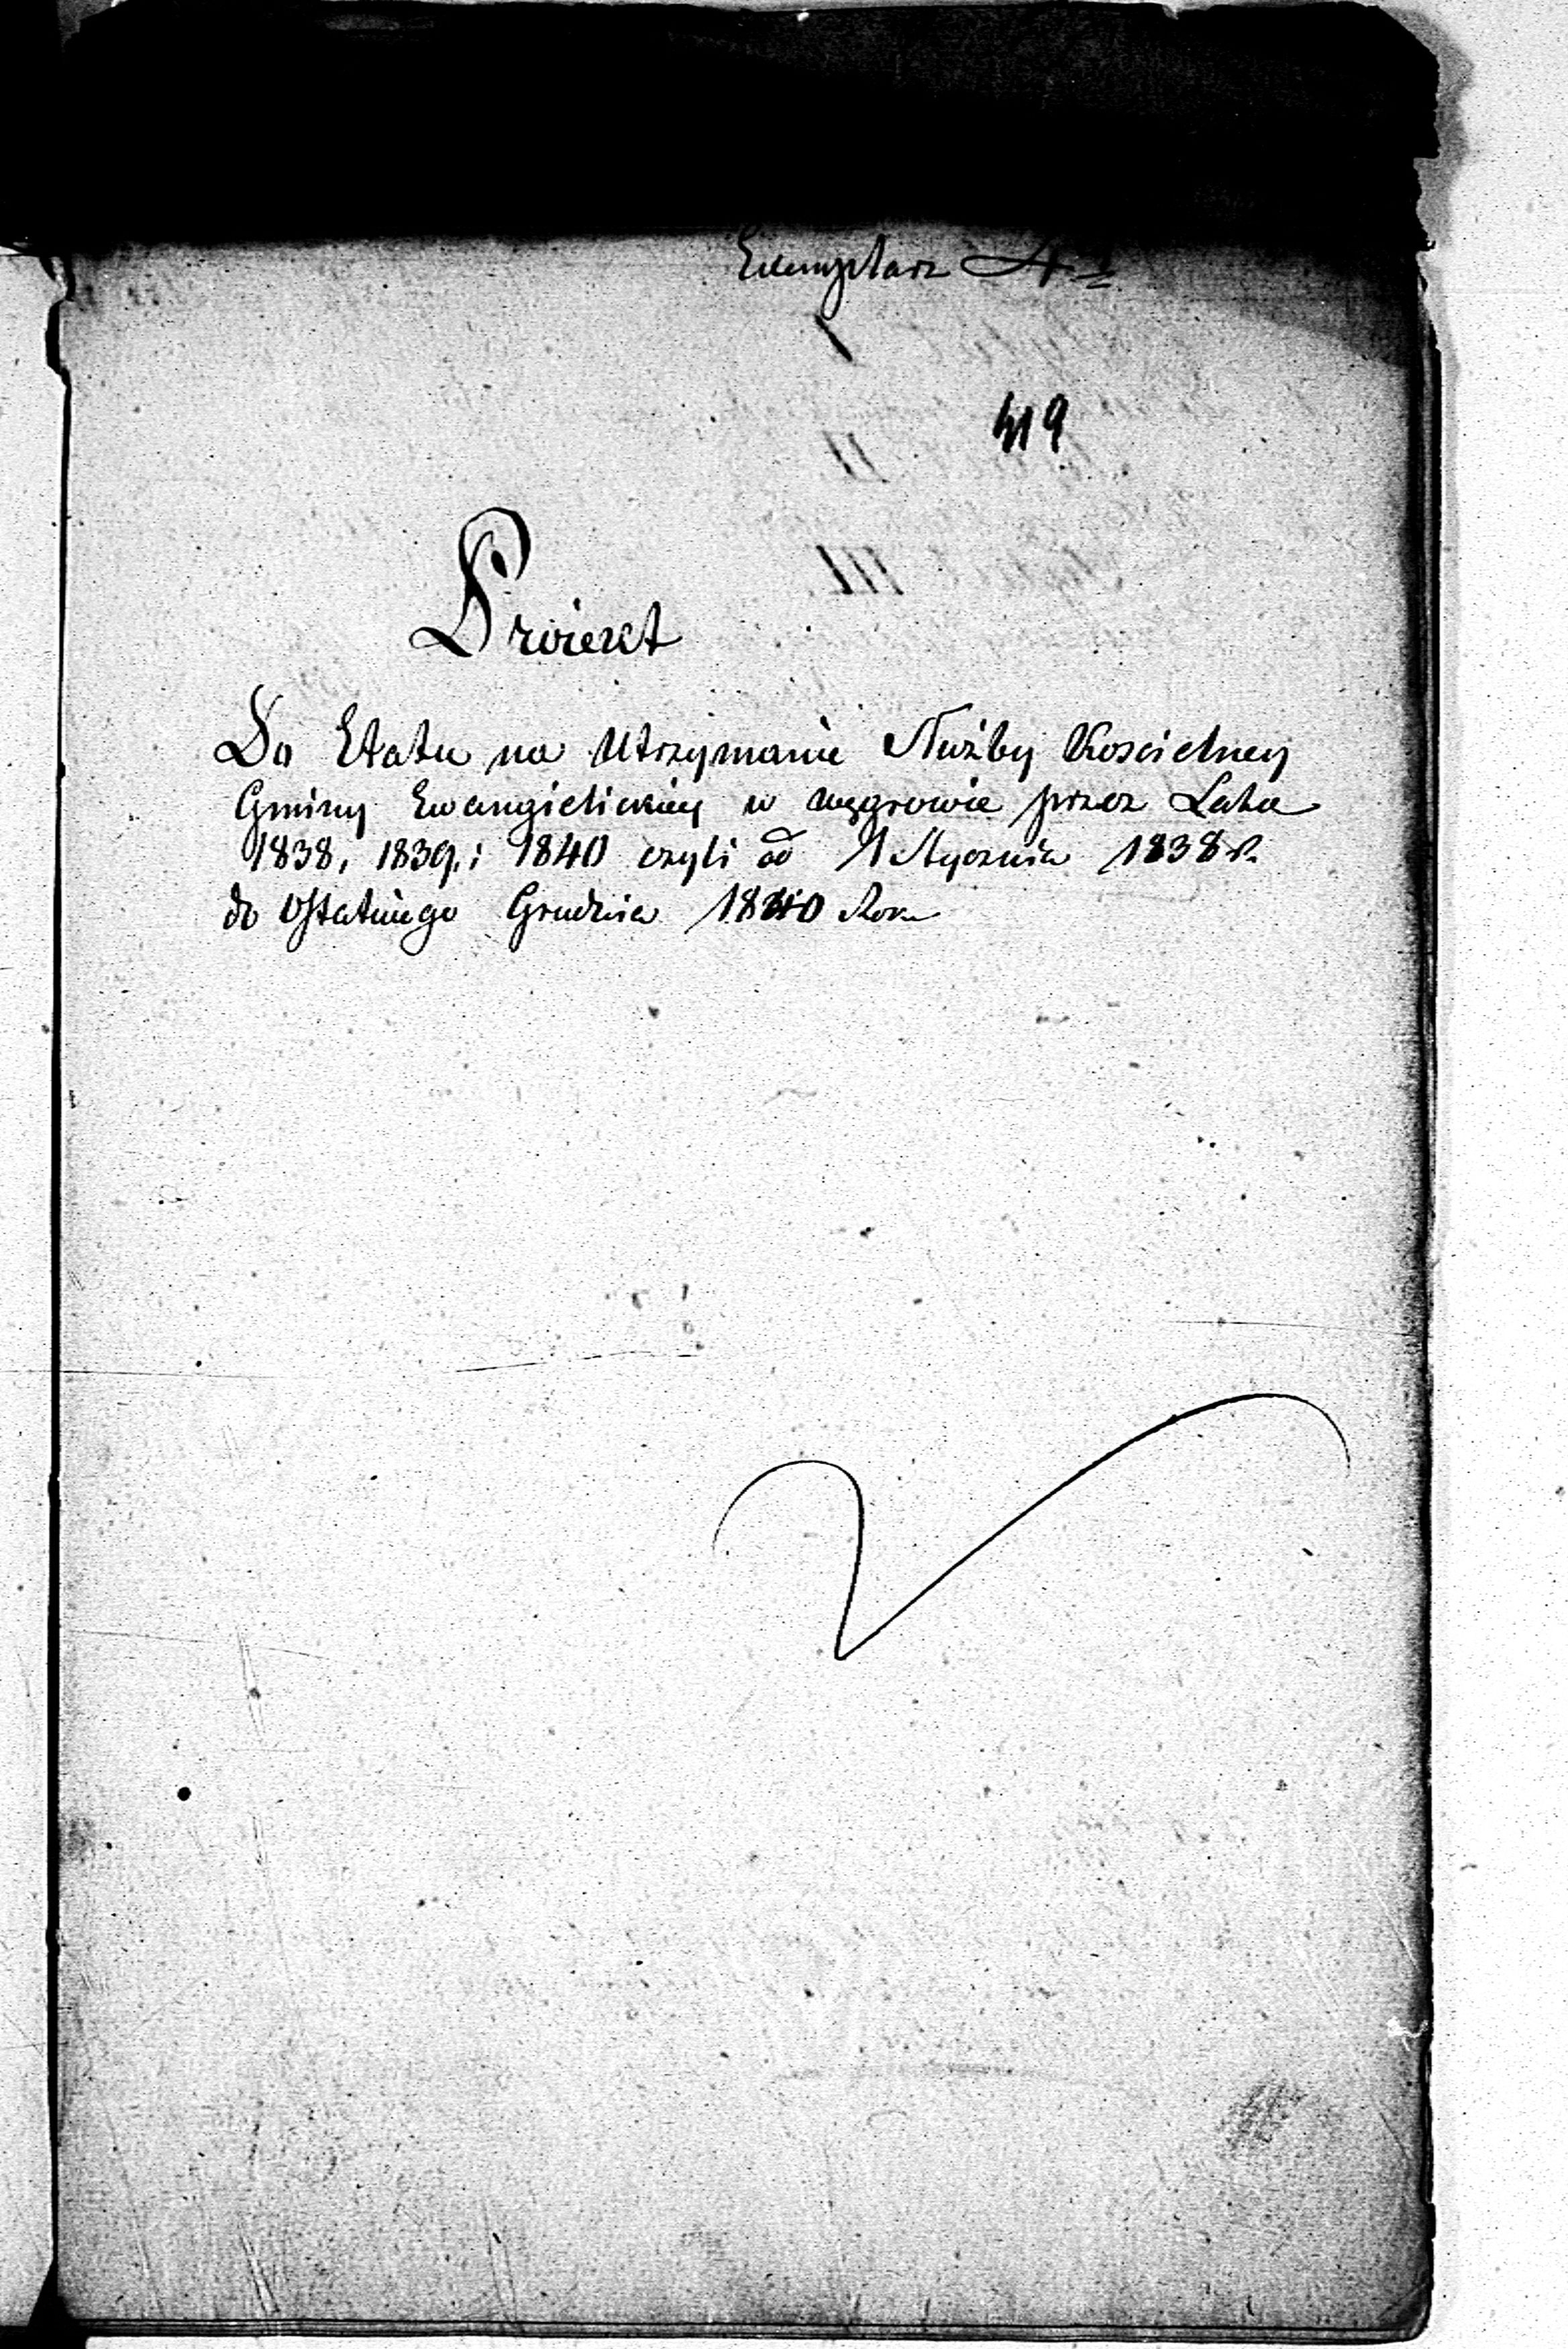 Exemplarz
419
Proiekt
Do Etatu na Utrzymanie Służby Koscielney
Gminy Ewangielickiey w Węgrowie przez Lata
1838, 1839, i 1840 czyli od 1 Stycznia 1838 R.
do Ostatniego Grudnia 1840 Roku